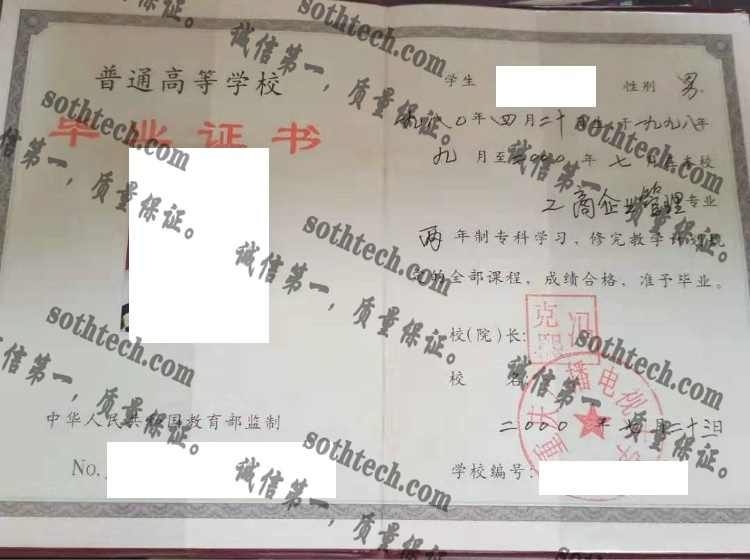 普通高等学校
毕业证书
中华人民共和国教育部监制
No.
学生 性别 男。
一九八〇年四月二十 日生，于一九九八年
九月至二000年七月在本校
工商企业管理专业
两年制专科学习，修完教学计划规
定的全部课程，成绩合格，准予毕业。
校(院)长:
校 名:
二000年七月二十三日
学校编号:
sothtech.com
诚信第一，质量保证。
sothtech.com
诚信第一，质量保证。
sothtech.com
诚信第一，质量保证。
sothtech.com
诚信第一，质量保证。
sothtech.com
诚信第一，质量保证。
sothtech.com
诚信第一，质量保证。